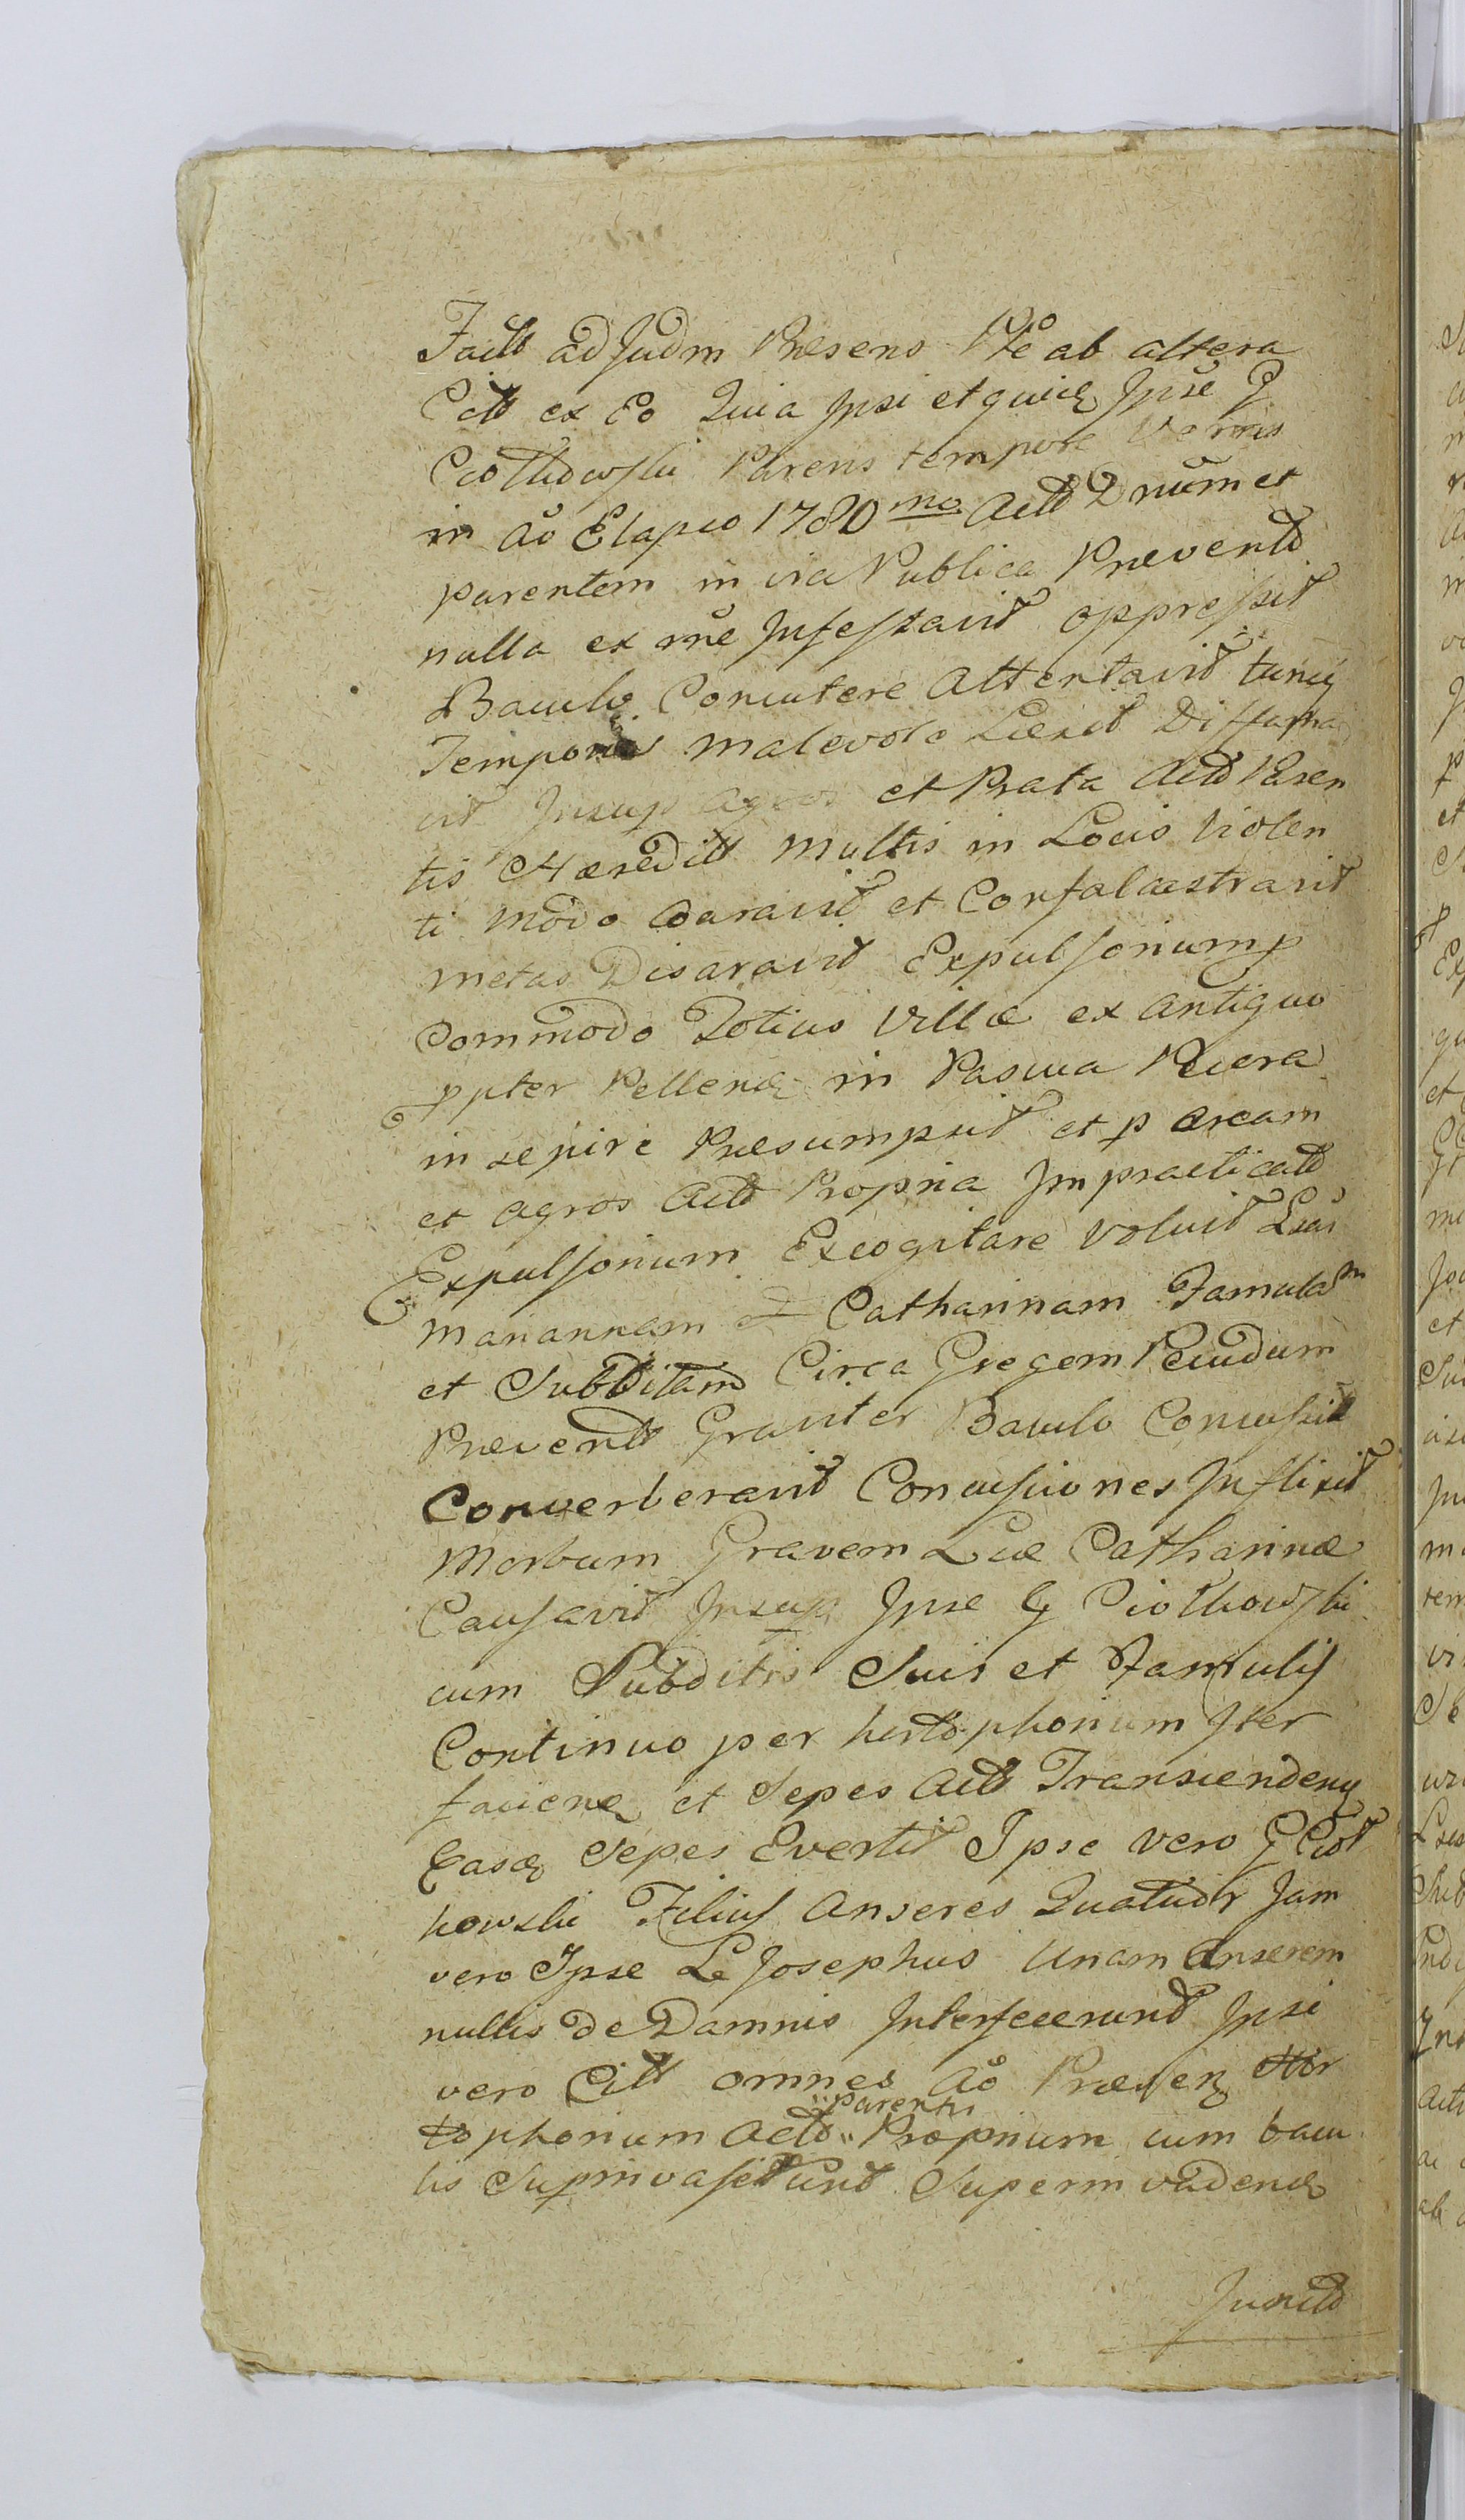 Factt ad Judm Præsens Pte ab altera
Citt ex Eo Quia Ipsi etquidę Ipse G
Ciotkdowski Parens tempore Vernis
in Aő Elapso 1780mo Actt Dnűm et
parentem in via Publica Prævento
nulla ex rñe Infestavit oppressit
Baculo Concutere Attentavit tuncq
Temporis malevole Læsit Diffama
vit Insup agros et Prata Actt Paren
tis Hæreditt multis in Locis Violen
ti modo Coaravit et Confalcastravit
metas Disaravit Expulsorium p
Commodo Totius Villæ ex antiquo
ppter Pellenę in Pascua Pecora
in sepire Præsumpsit et p aream
et agros Actt Propria Impracticatt
Expulsorium Excogitare voluit Lras
Mariannam et Catharinam Famulam
et Subditam Circa Gregem Pecudum
Prævento Graviter Baculo Concussit
Converberavit Concussiones Inflixit
Morbum Gravem Læ Catharinæ
Causavit Insup Ipse G Ciotkowski
cum Subditis Suis et Famulis
Continuo per hortophorium Iter
facienę et Sepes Actt Transcendenę
Easq Sepes Evertit Ipse vero G Ciot
kowski Filius Anseres Quatuor Jam
vero Ipse L Josephus Unam Anserem
nullis de Damnis Interfecerunt Ipsi
vero Citt omnes Aő Præsenę Hor
tophorium Actt parentis Proprium cum bacu
lis Supinvaserunt Superinvadenę
Junctt